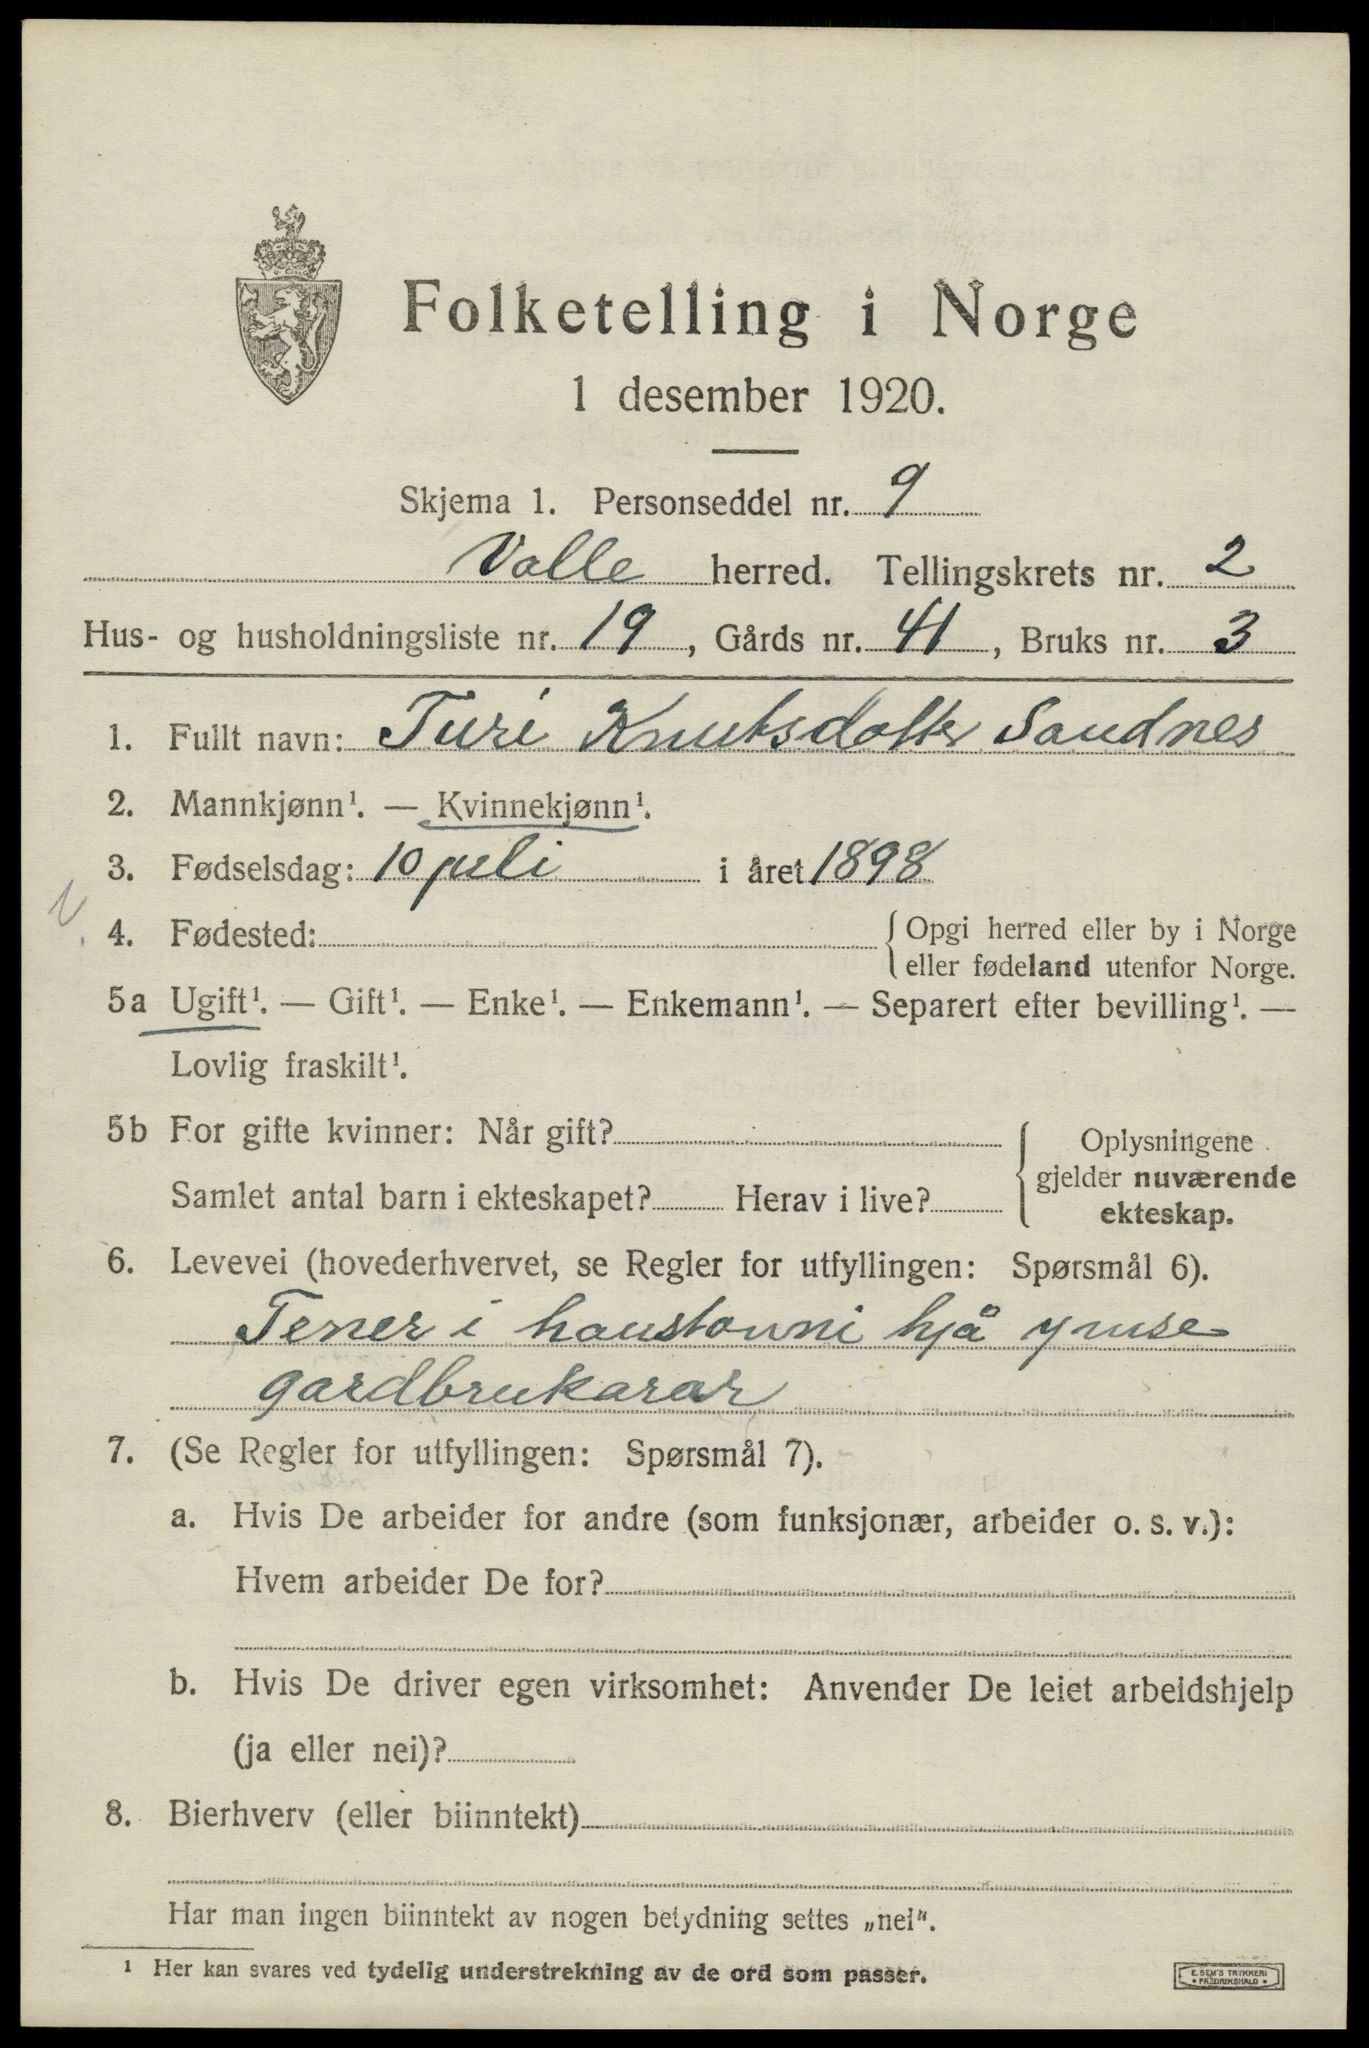 Folketelling i Norge
1 desember 1920.
Skjema 1. Personseddel nr. 9
Valle herred. Tellingskrets nr. 2
Hus- og husholdningsliste nr. 19, Gårds nr. 41, Bruks nr. 3
1. Fullt navn: Turi Knutsdotter Sandnes
2. Mannkjønn¹. — Kvinnekjønn¹.
3. Fødselsdag: 10 juli i året 1898
4. Fødested: Opgi herred eller by i Norge
eller fødeland utenfor Norge.
5a Ugift¹. — Gift¹. — Enke¹. — Enkemann¹. — Separert efter bevilling¹. —
Lovlig fraskilt¹.
5b For gifte kvinner: Når gift?
Samlet antal barn i ekteskapet? Herav i live?
Oplysningene
gjelder nuværende
ekteskap.
6. Levevei (hovederhvervet, se Regler for utfyllingen: Spørsmål 6).
Tener i haustonni hjå ymse
gardbrukarar
7. (Se Regler for utfyllingen: Spørsmål 7).
a. Hvis De arbeider for andre (som funksjonær, arbeider o. s. v.):
Hvem arbeider De for?
b. Hvis De driver egen virksomhet: Anvender De leiet arbeidshjelp
(ja eller nei)?
8. Bierhverv (eller biinntekt)
Har man ingen biinntekt av nogen betydning settes „nei".
¹ Her kan svares ved tydelig understrekning av de ord som passer.
E. SEM'S TRYKKERI
FREDRIKSHALD